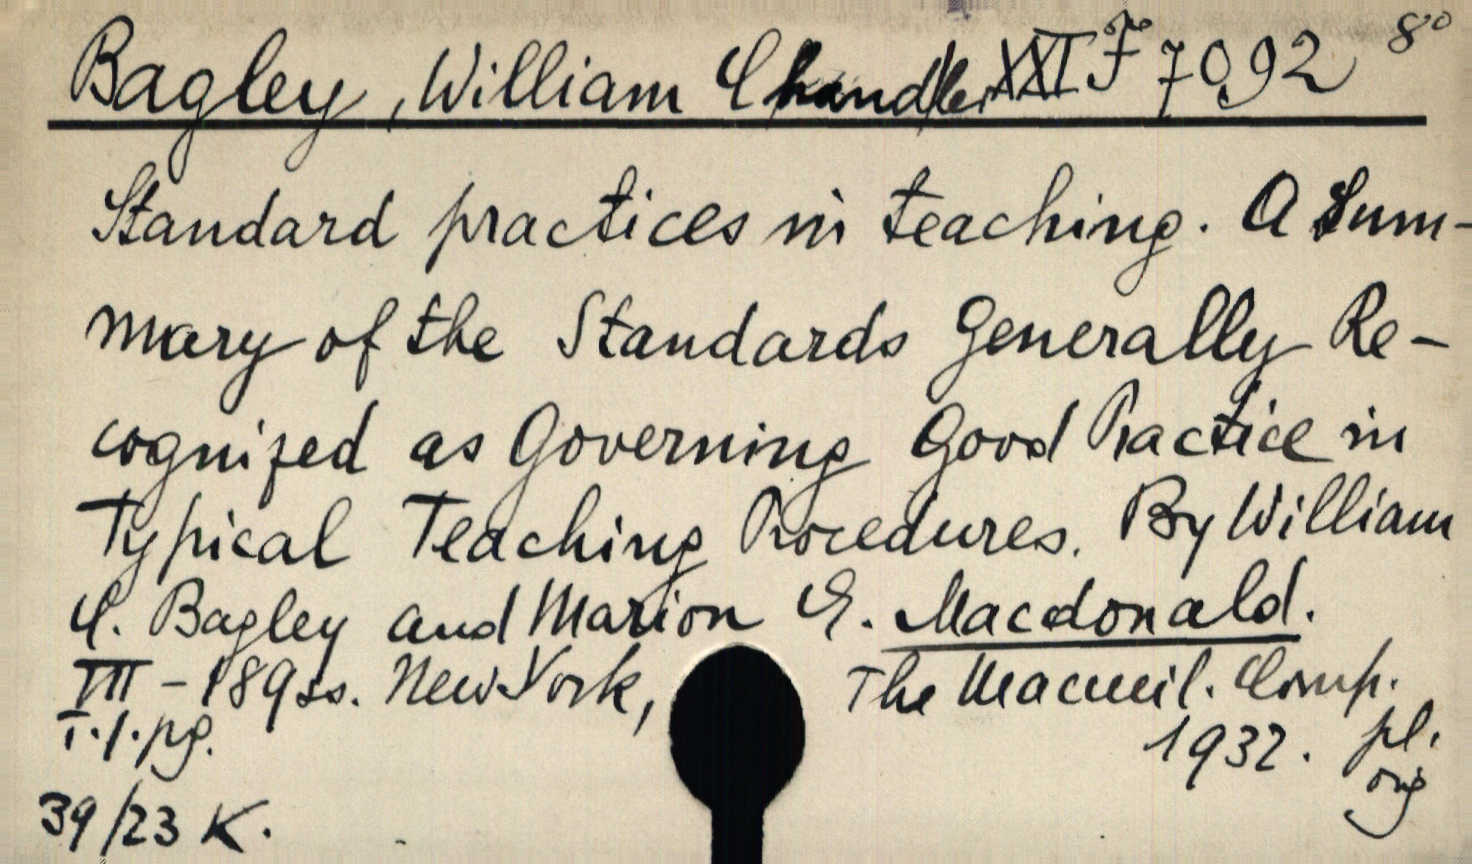 Bagley, William Chandler XXI F 7092 8°
Standard practices in teaching. A Sum-
mary of the Standards Generally Re-
cognized as Governing Good Practice in
Typical Teaching Procedures. By William
C. Bagley and Marion E. Macdonald.
VII - 189 ss. New York, The Macmil. Comp.
T. 1. pg. 1932. pl.
org
39/23 K.